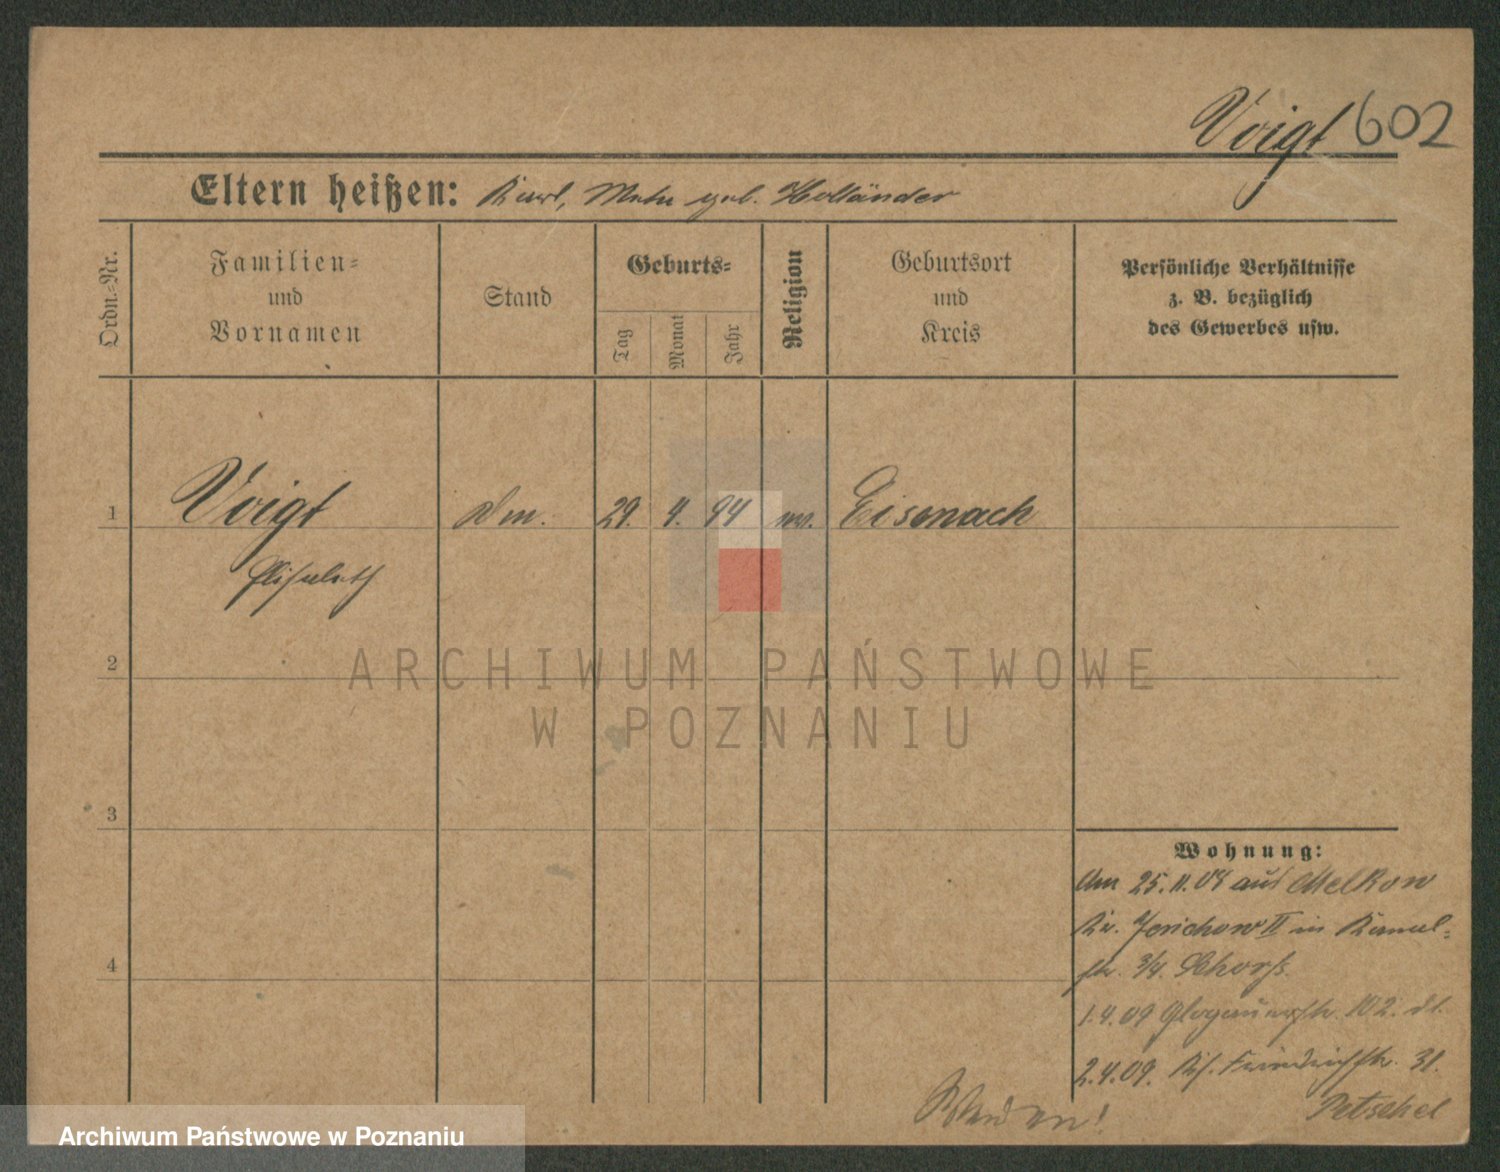 Voigt 602
Eltern heißen: Karl, geb. Holländer
Ordn.-Nr.
Familien-
und
Vornamen
Stand
Geburts-
Tag
Monat
Jahr
Religion
Geburtsort
und
Kreis
Persönliche Verhältnisse
z. B. bezüglich
des Gewerbes usw.
1 Voigt 29. 4. 94 Eisenach
Elisabeth
2
ARCHIWUM PAŃSTWOWE
W POZNANIU
3
4
Wohnung:
Am 25.11.08 aus Melkow
Kr. Jerichow II in Kanal-
str. 3/4.
1.4.09 Glogauerstr. 102. dt.
2.4.09. Friedrichstr. 31.
Petschel
Wenden!
Archiwum Państwowe w Poznaniu